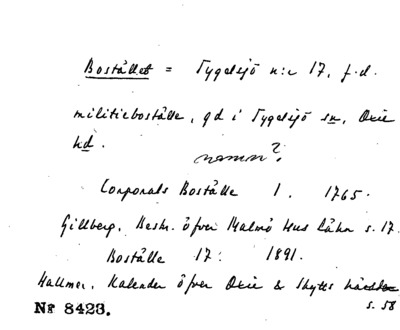 Bostället = Tygelsjö n:r 17, f.d.
militieboställe, gd i Tygelsjö sn, Oxie
hd.
namn?
Corporals Boställe 1. 1765.
Gillberg, Beskr. öfver Malmö Hus Lähn s. 17.
Boställe 17. 1891.
Hallmer, Kalender öfver Oxie & Skytts härader
s. 58
Nr 8423.